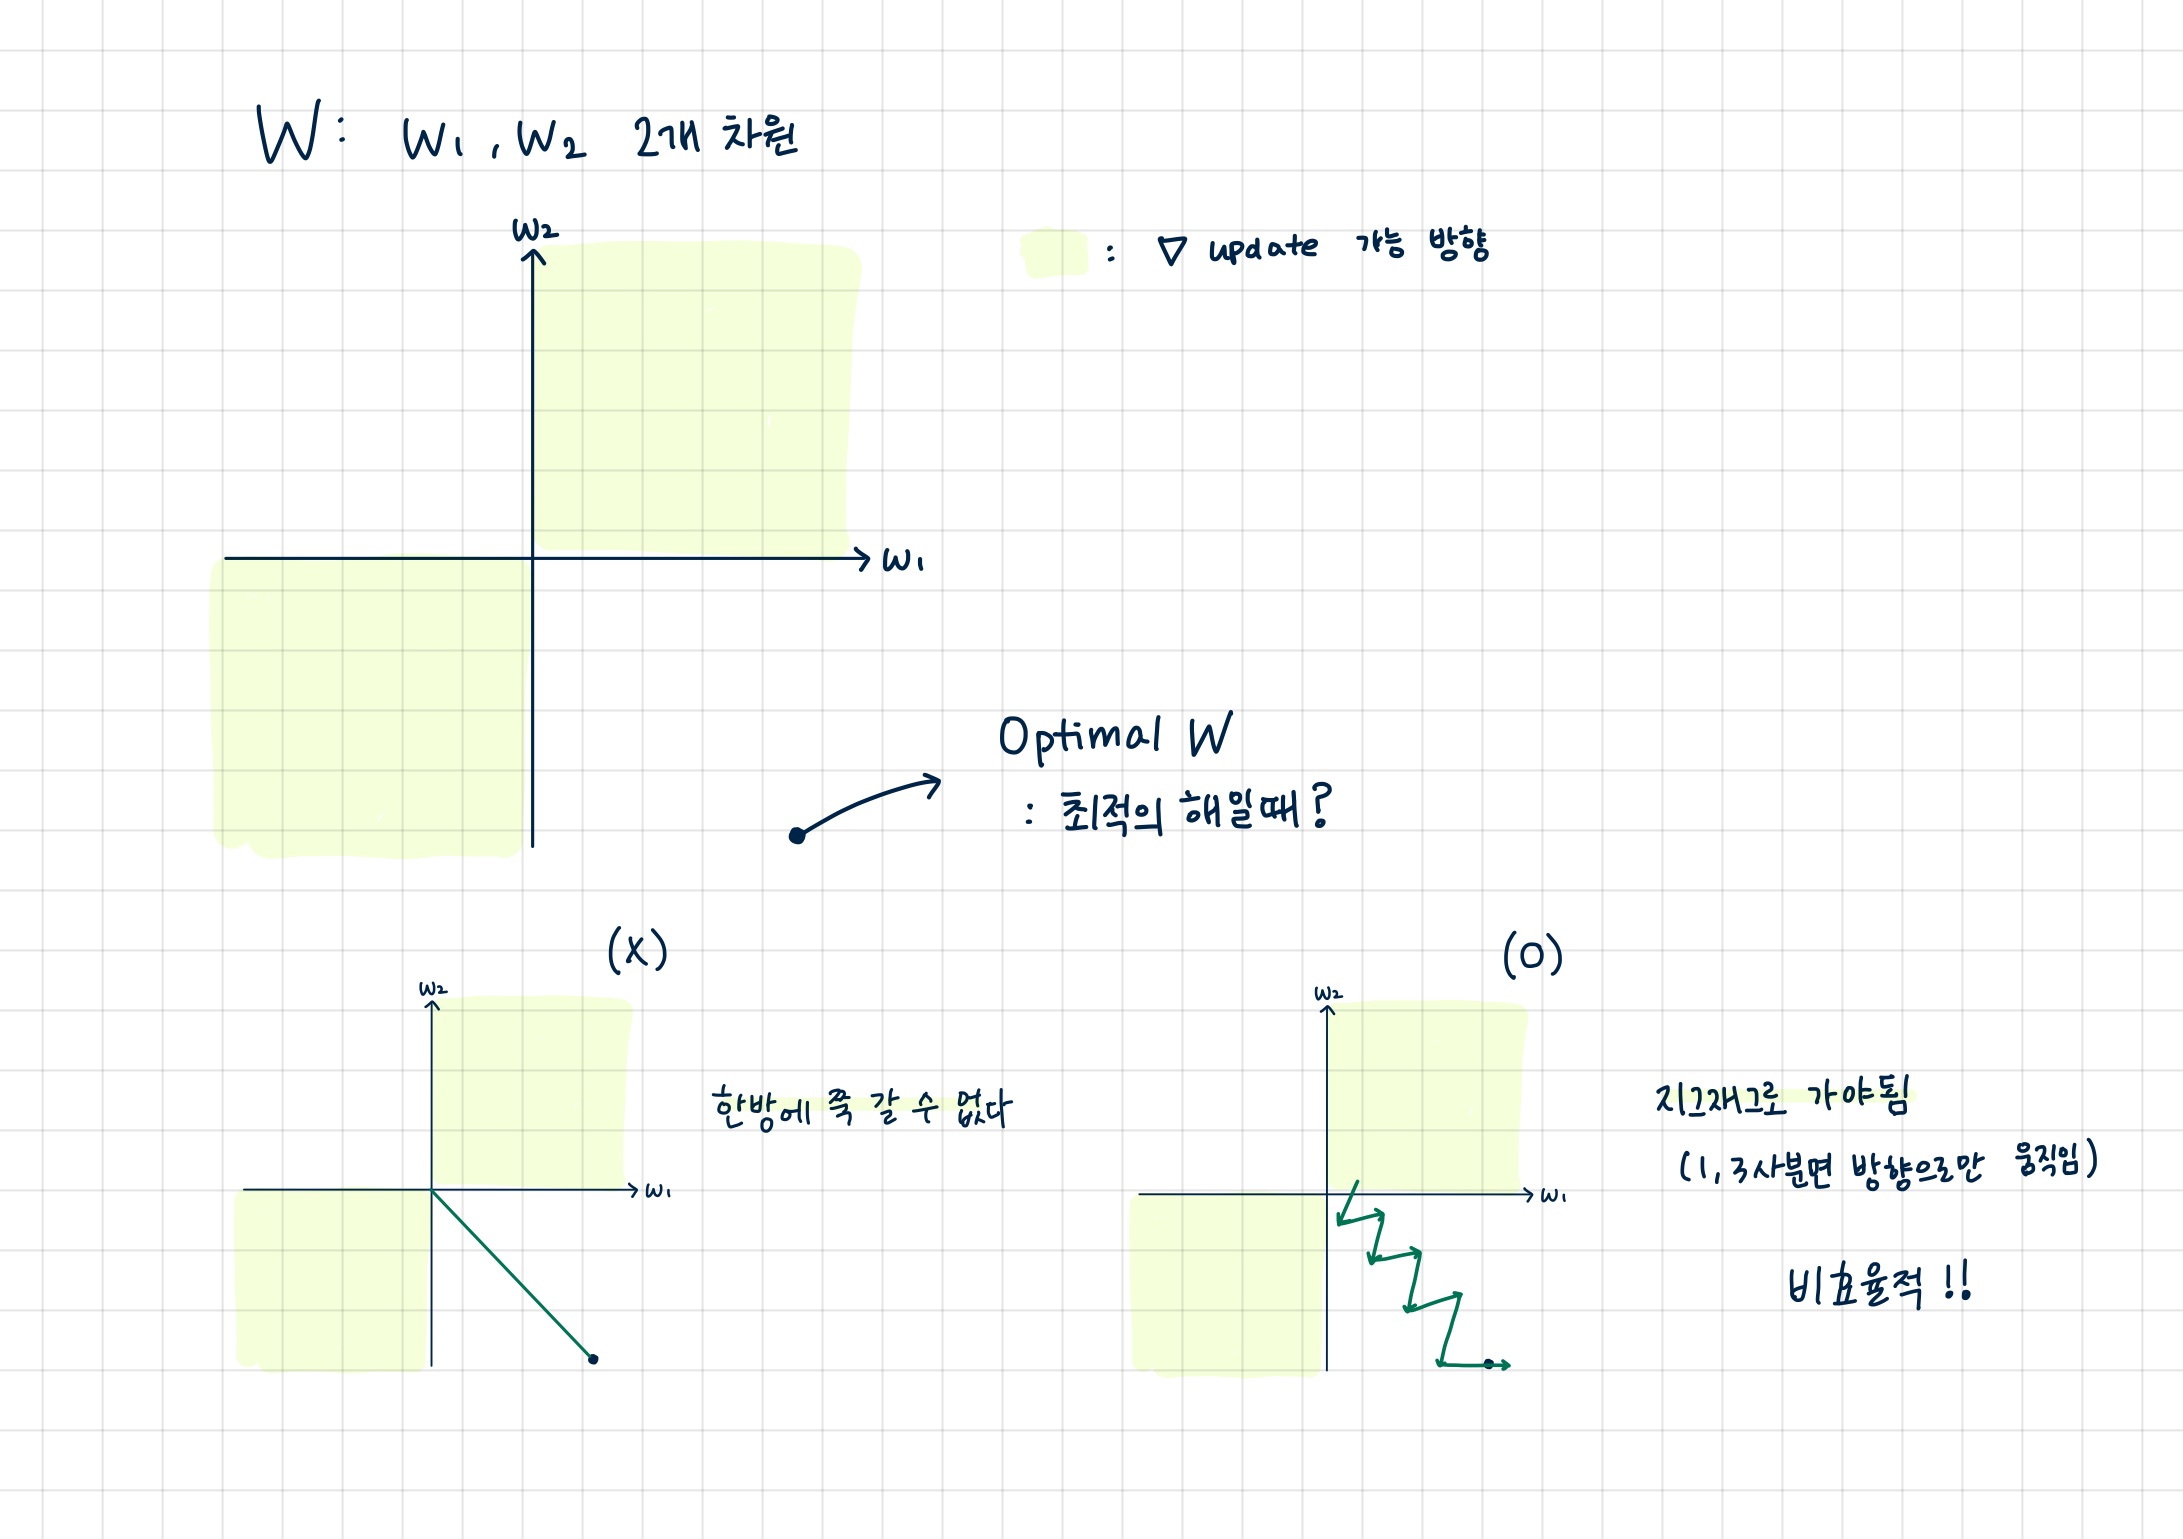 W: W1, W2 2개 차원
W2
: ▽ update 가능 방향
W1
Optimal W
: 최적의 해일때?
(X)
(O)
W2
W2
한방에 쭉 갈 수 없다
지그재그로 가야됨
(1,3사분면 방향으로만 움직임)
W1
W1
비효율적!!